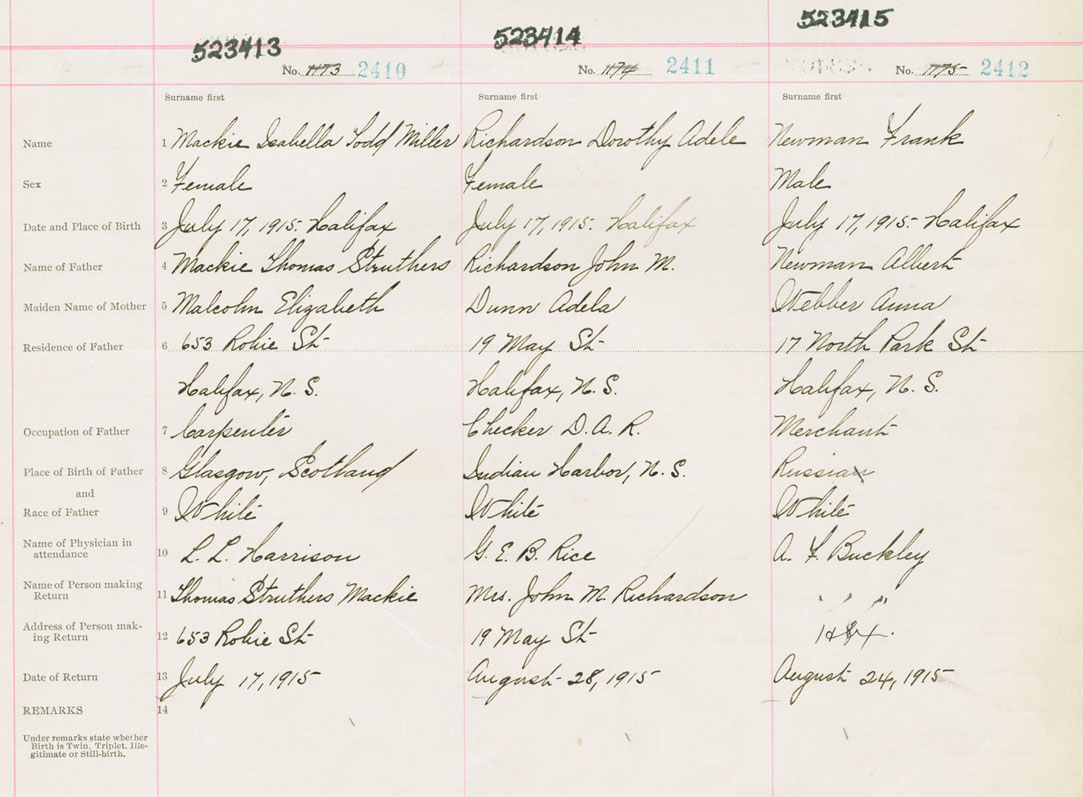 523413 523414 523415
No. 1173 2410 No. 1174 2411 No. 1175 2412
Surname first Surname first Surname first
Name 1 Mackie Isabella Todd Miller Richardson Dorothy Adele Newman Frank
Sex 2 Female Female Male
Date and Place of Birth 3 July 17, 1915. Halifax July 17, 1915. Halifax July 17, 1915. Halifax
Name of Father 4 Mackie Thomas Struthers Richardson John M. Newman Albert
Maiden Name of Mother 5 Malcolm Elizabeth Dunn Adela Webber Anna
Residence of Father 6 653 Robie St 19 May St 17 North Park St
Halifax, N. S. Halifax, N. S. Halifax, N. S.
Occupation of Father 7 Carpenter Checker D. A. R. Merchant
Place of Birth of Father 8 Glasgow, Scotland Indian Harbor, N. S. Russian
and
Race of Father 9 White White White
Name of Physician in
attendance 10 L. L. Harrison G. E. B. Rice A. F. Buckley
Name of Person making
Return 11 Thomas Struthers Mackie Mrs. John M. Richardson " "
Address of Person mak-
ing Return 12 653 Robie St 19 May St
Date of Return 13 July 17, 1915 August 28, 1915 August 24, 1915
REMARKS 14
Under remarks state whether
Birth is Twin, Triplet, Ille-
gitimate or Still-birth.